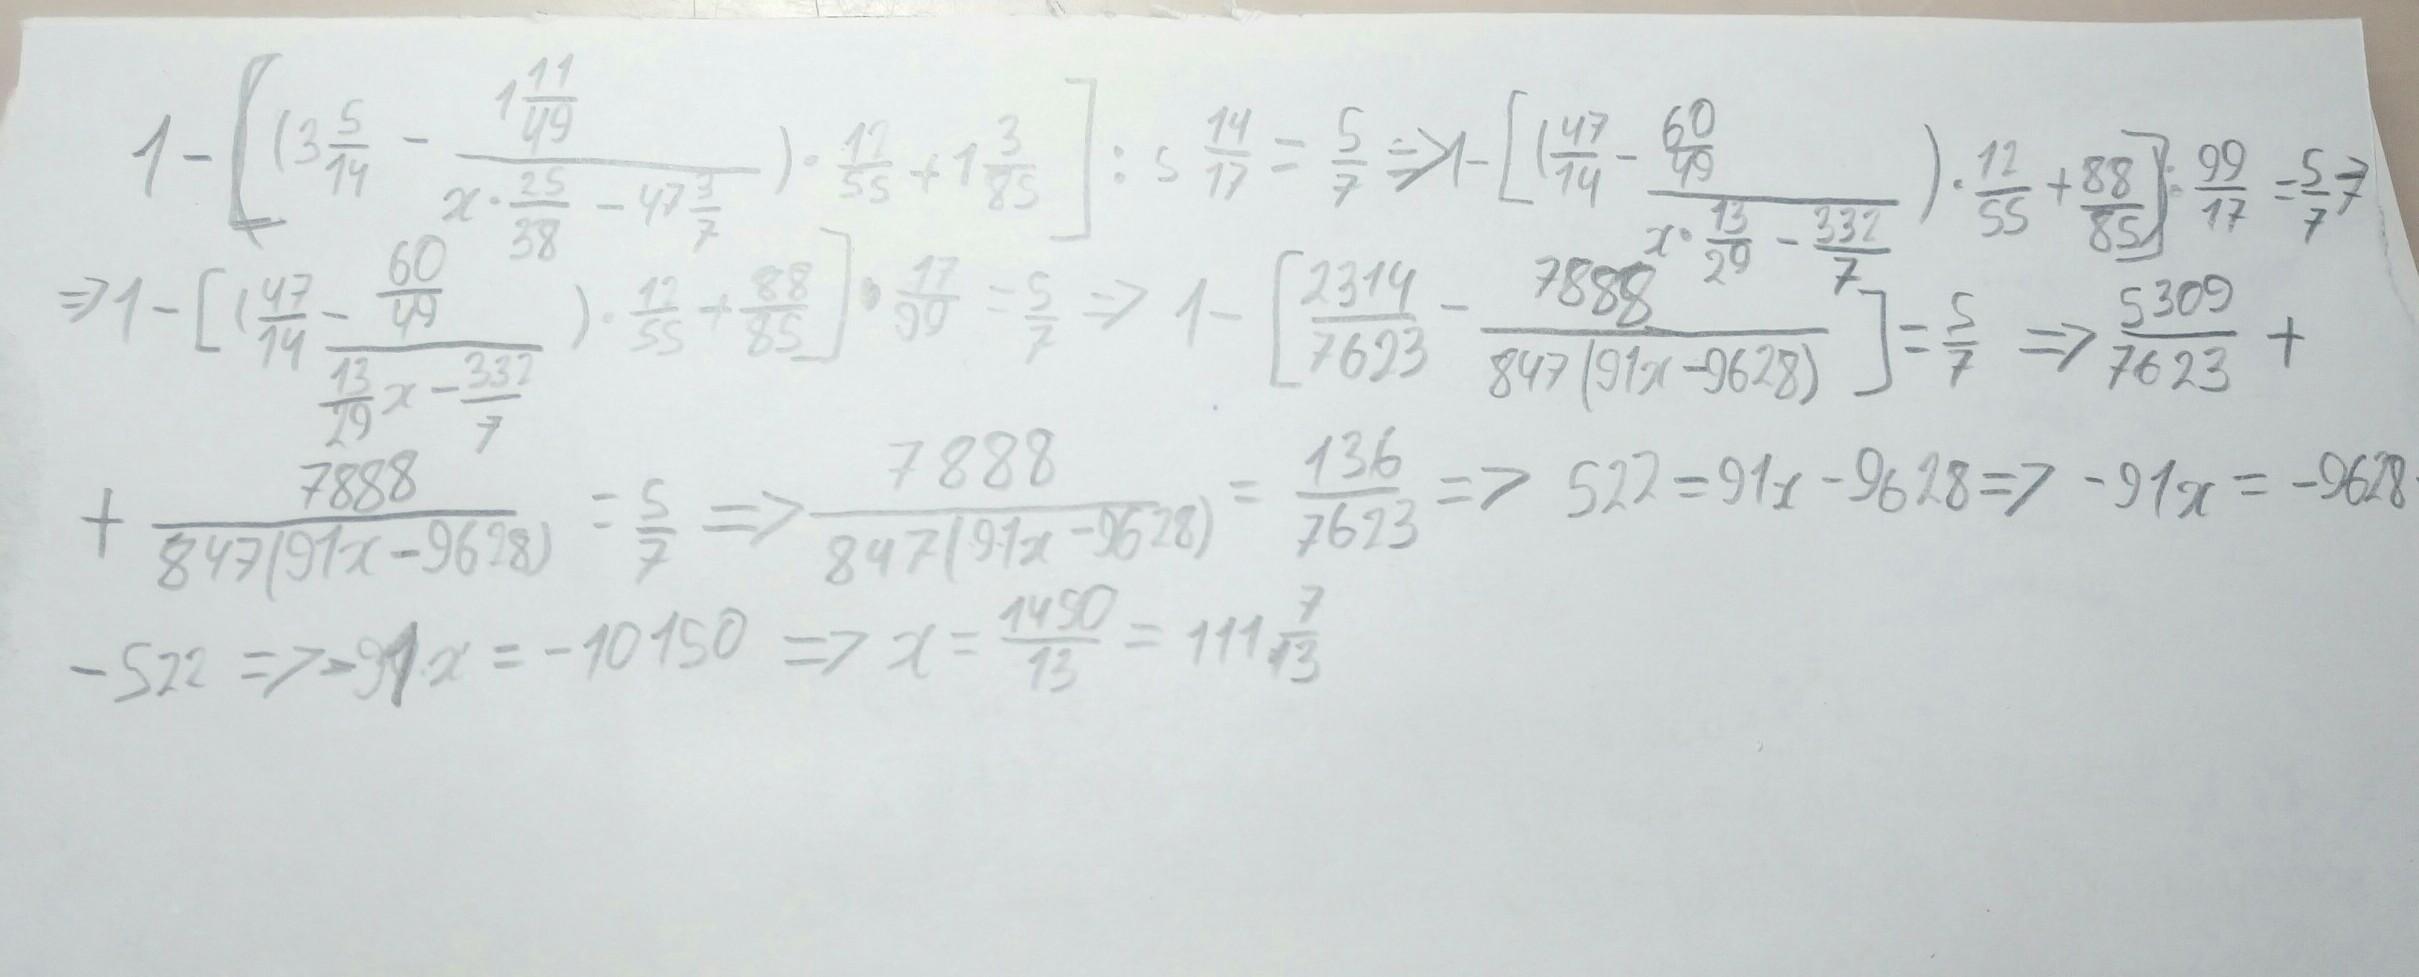 1 - [(3 5/14 - (1 11/49)/(x · 25/38 - 47 3/7)) · 12/55 + 1 3/85] : 5 14/17 = 5/7 => 1 - [(47/14 - (60/49)/(x · 13/29 - 332/7)) · 12/55 + 88/85] : 99/17 = 5/7 =>
=> 1 - [(47/14 - (60/49)/(13/29 x - 332/7)) · 12/55 + 88/85] · 17/99 = 5/7 => 1 - [2314/7623 - 7888/(847(91x - 9628))] = 5/7 => 5309/7623 +
+ 7888/(847(91x - 9628)) = 5/7 => 7888/(847(91x - 9628)) = 136/7623 => 522 = 91x - 9628 => -91x = -9628 -
- 522 => -91x = -10150 => x = 1450/13 = 111 7/13